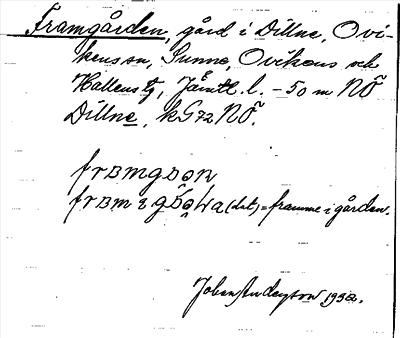 Framgården, gård i Dillne, Ovi-
kens sn, Sunne, Ovikens och
Hallens tg, Jämtl. l. - 50 m NÖ
Dillne, kG72 NÖ.
framgɒn
(dat) = framme i gården.
Johan Anderson 1932.